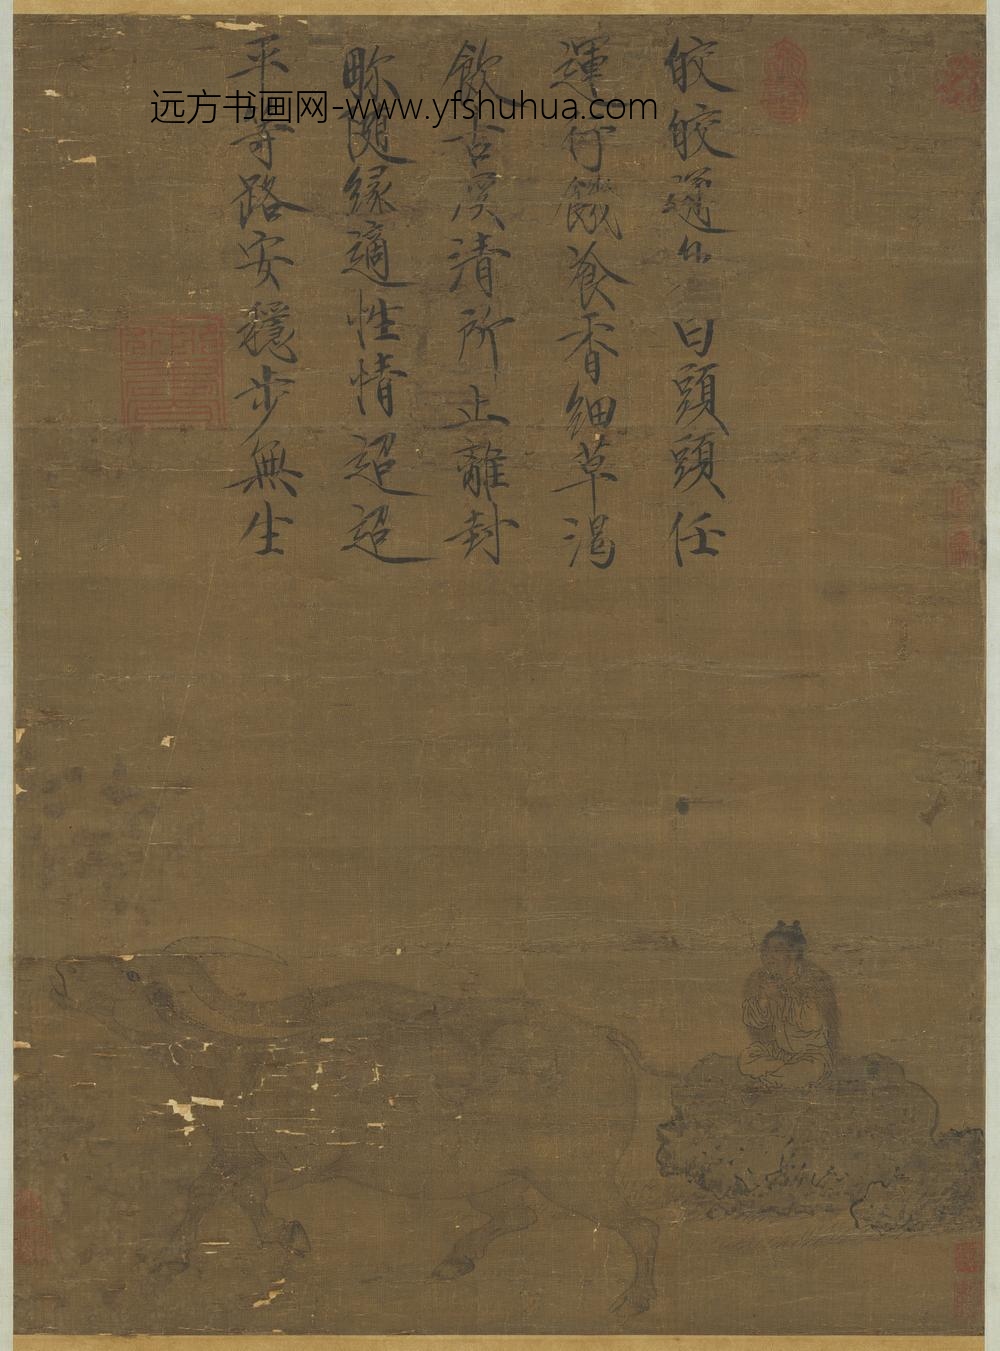 远方书画网-www.yfshuhua.com
皎皎白頭頭任
運行饑飡香細草渴
飲古溪清所止離封
畛隨緣適性情迢迢
平等路安穩步無生